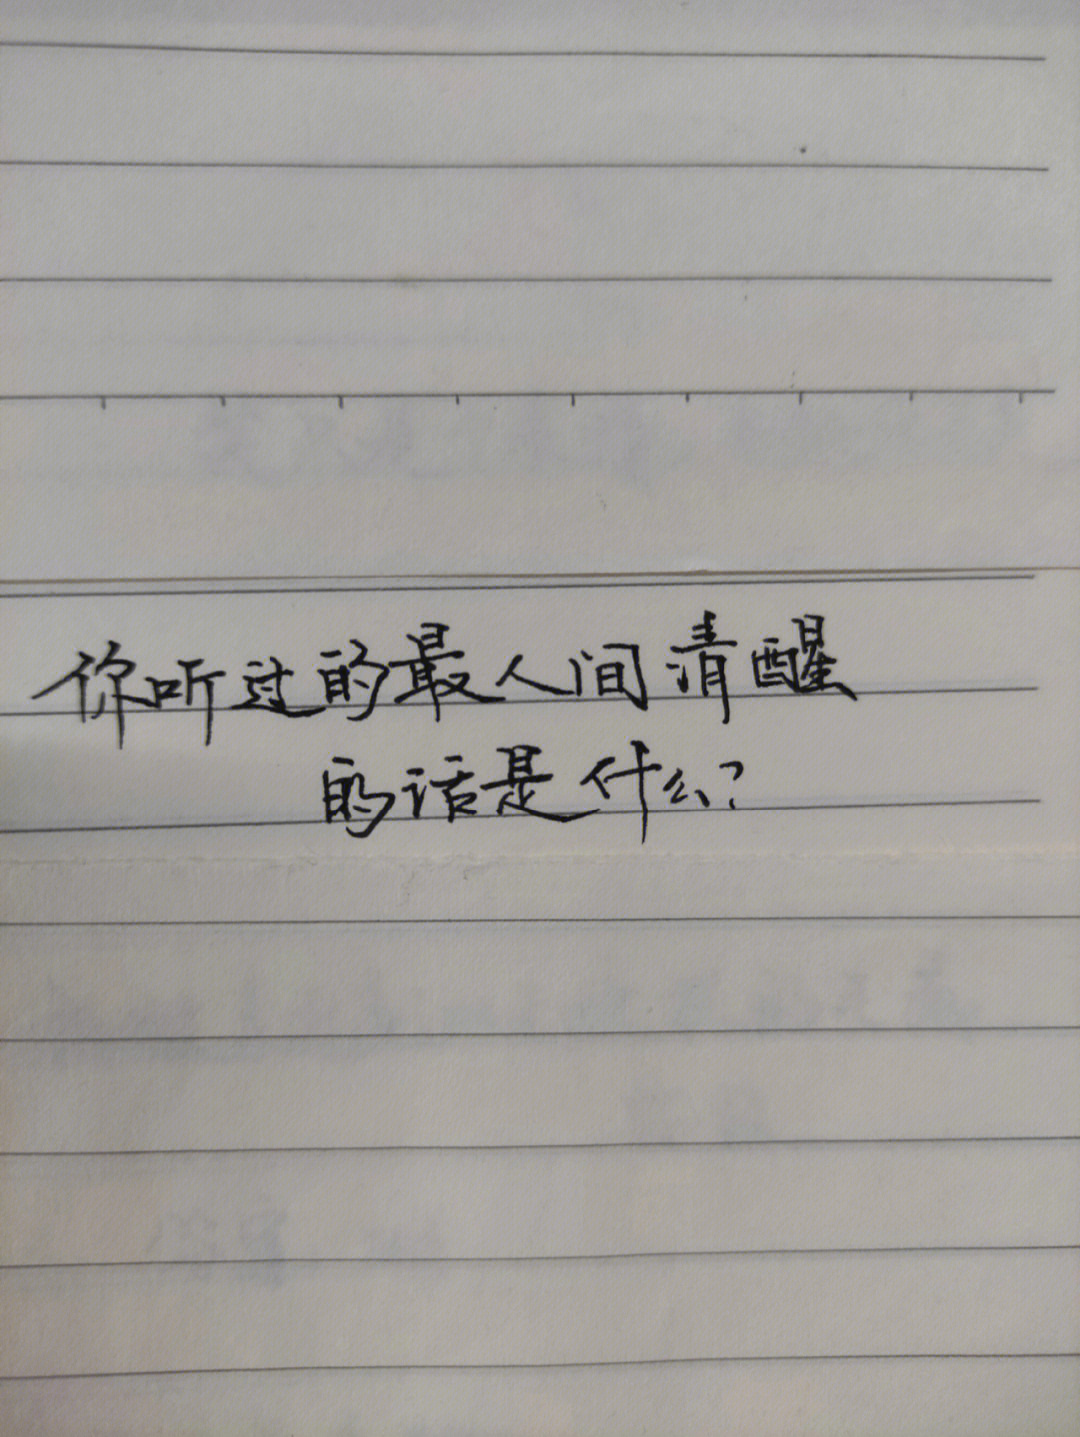 你听过的最人间清醒
的话是什么?